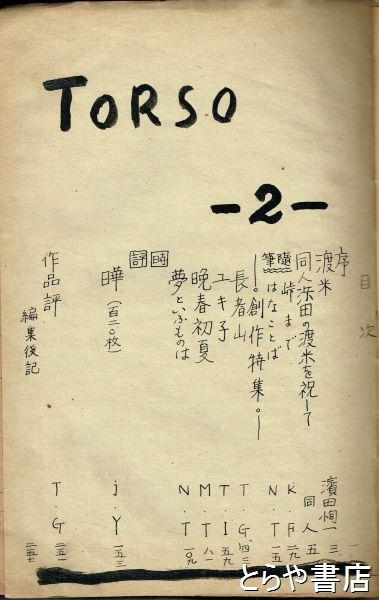 TORSO
-2-
目次
序 一
渡米 濱田恂一 三
同人浜田の渡米を祝して 同人 五
隨筆
峠まで K・A 一九
はなことば N・T 一五
―。創作特集。―
長者山 T・G 四三
ユキ子 T・I 五九
晩春初夏 M・T 八一
夢といふものは N・T 一〇九
詩
曄(百二〇枚) j・Y 一五三
作品評 T・G 二五一
編集後記 二五七
とらや書店